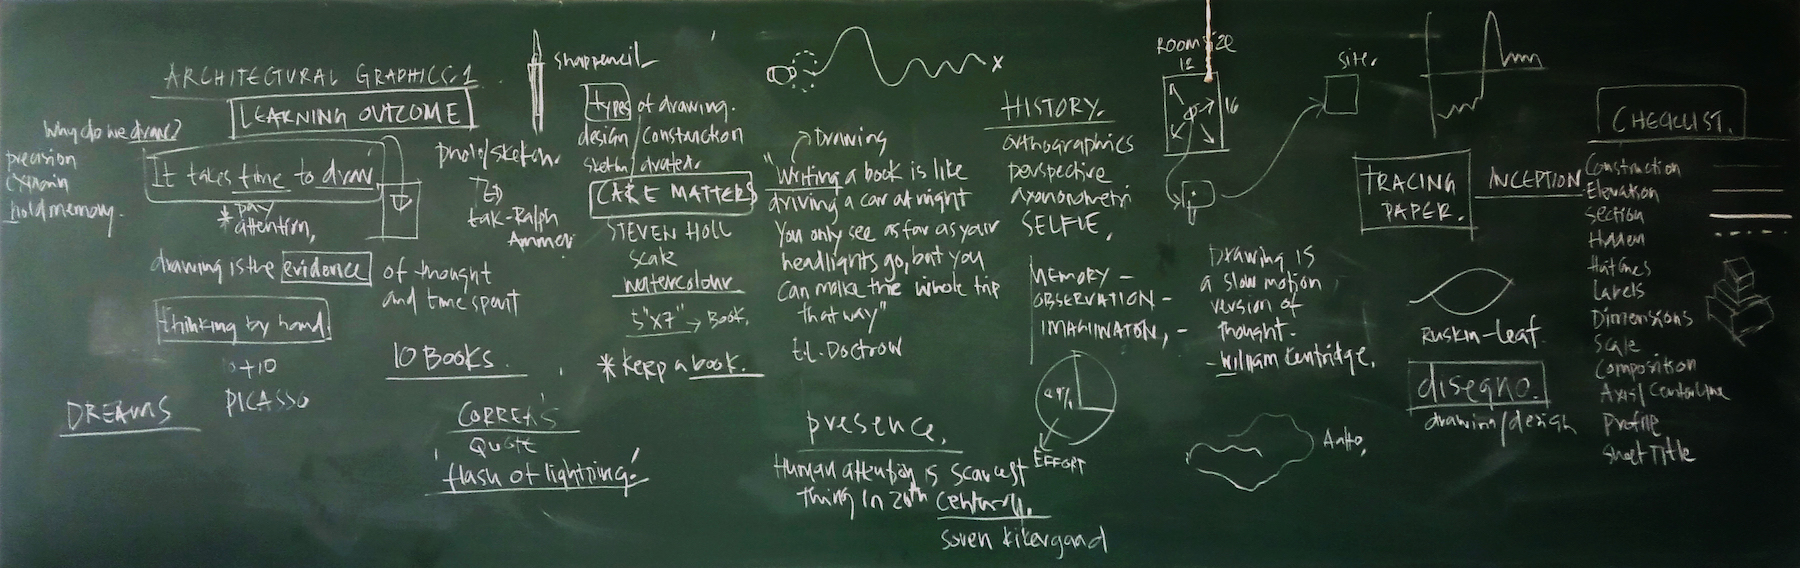 ARCHITECTURAL GRAPHICS-1
LEARNING OUTCOME
Why do we draw?
precision
hold memory.
It takes time to draw
* pay
attention,
drawing is the evidence of thought
and time spent
thinking by hand
PICASSO
DREAMS
sharpencil
photo/sketch.
tak-Ralph
10 BOOKS.
CORREA'S
QUOTE
'flash of lightning.'
types of drawing.
design construction
CARE MATTERS
STEVEN HOLL
scale
watercolour
5"x7" → Book.
* keep a book.
x
Drawing
"Writing a book is like
driving a car at night
You only see as far as your
headlights go, but you
can make the whole trip
that way"
E.L. Doctrow
presence.
Human attention is scarcest
thing in 20th century.
soren kikergaad
HISTORY.
orthographics
perspective
axonometri
SELFIE.
MEMORY -
OBSERVATION -
IMAGINATON, -
EFFORT
ROOM SIZE
12
16
site.
Drawing is
a slow motion
version of
thought.
- William Kentridge.
Aalto,
TRACING
PAPER.
INCEPTION
Ruskin-leaf.
disegno.
drawing/design
CHECKLIST.
Construction
Elevation
Section
Hidden
Hatches
Labels
Dimensions
Scale
Composition
Axis/Centerline
Profile
Sheet Title